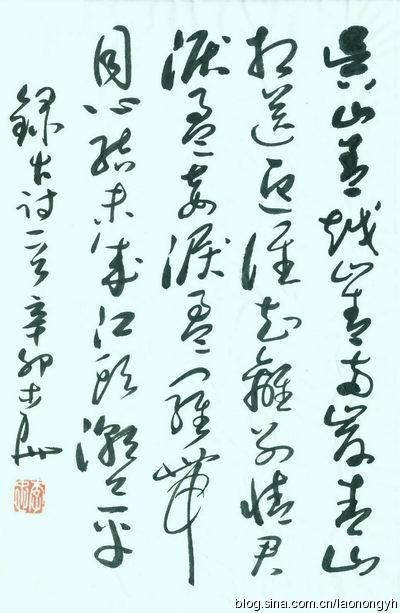 吴山青越山青两岸青山
相送迎谁知離别情君
淚盈妾淚盈羅帶
同心结未成江头潮已平
録古诗一首辛卯
blog.sina.com.cn/laonongyh